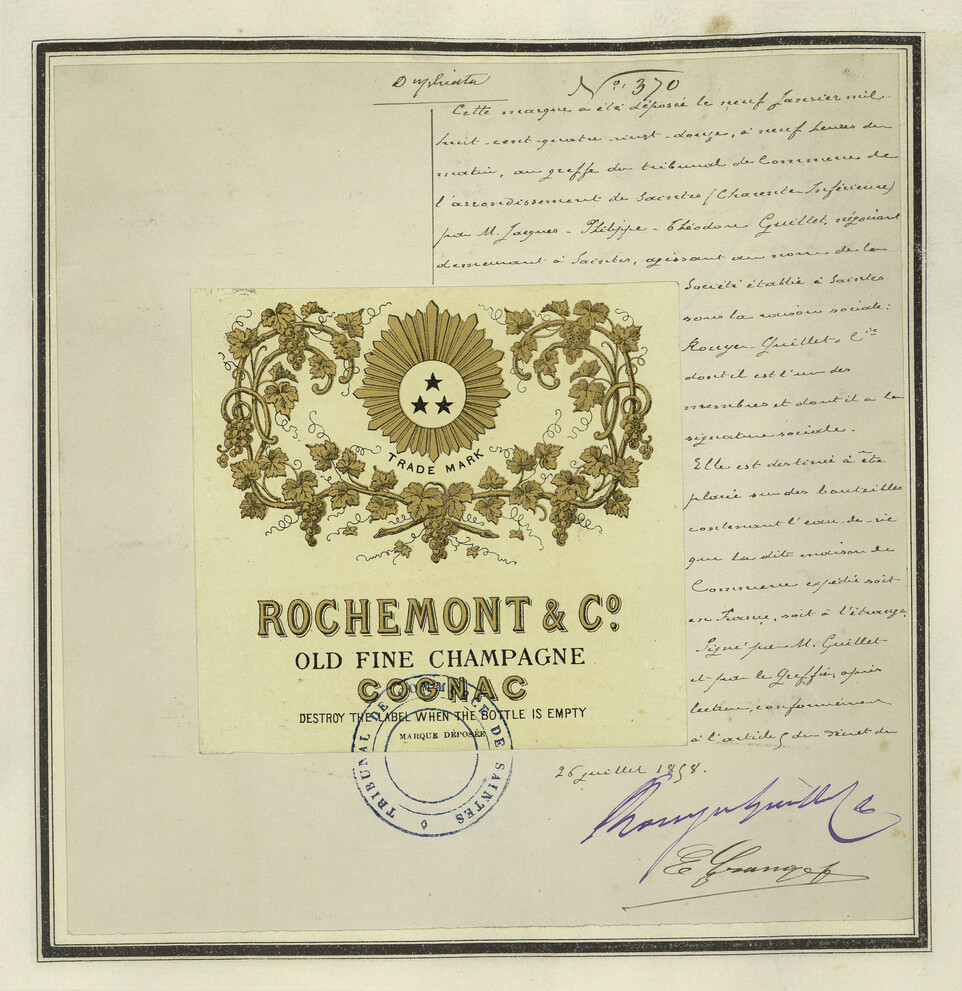 Duplicata
N° 370
Cette marque a été déposée le neuf Janvier mil-
huit-cent-quatre-vingt-douze, à neuf heures du
matin, au greffe du tribunal de Commerce de
l'arrondissement de Saintes (Charente Inférieure)
par M. Jacques-Philippe-Théodore Guillet, négociant
demeurant à Saintes, agissant au nom de la
Société établie à Saintes
sous la raison sociale:
Rouyer-Guillet & Cie
dont il est l'un des
membres et dont il a la
signature sociale.
Elle est destinée à être
placée sur des bouteilles
contenant l'eau-de-vie
que la dite maison de
Commerce expédie soit
en France, soit à l'étranger
Signé par M. Guillet
et par le Greffier, après
lecture, conformément
à l'article 5 du décret du
26 juillet 1858.
TRADE MARK
ROCHEMONT & Co.
OLD FINE CHAMPAGNE
COGNAC
DESTROY THE LABEL WHEN THE BOTTLE IS EMPTY
MARQUE DÉPOSÉE
TRIBUNAL DE COMMERCE DE SAINTES
Rouyer Guillet & Co